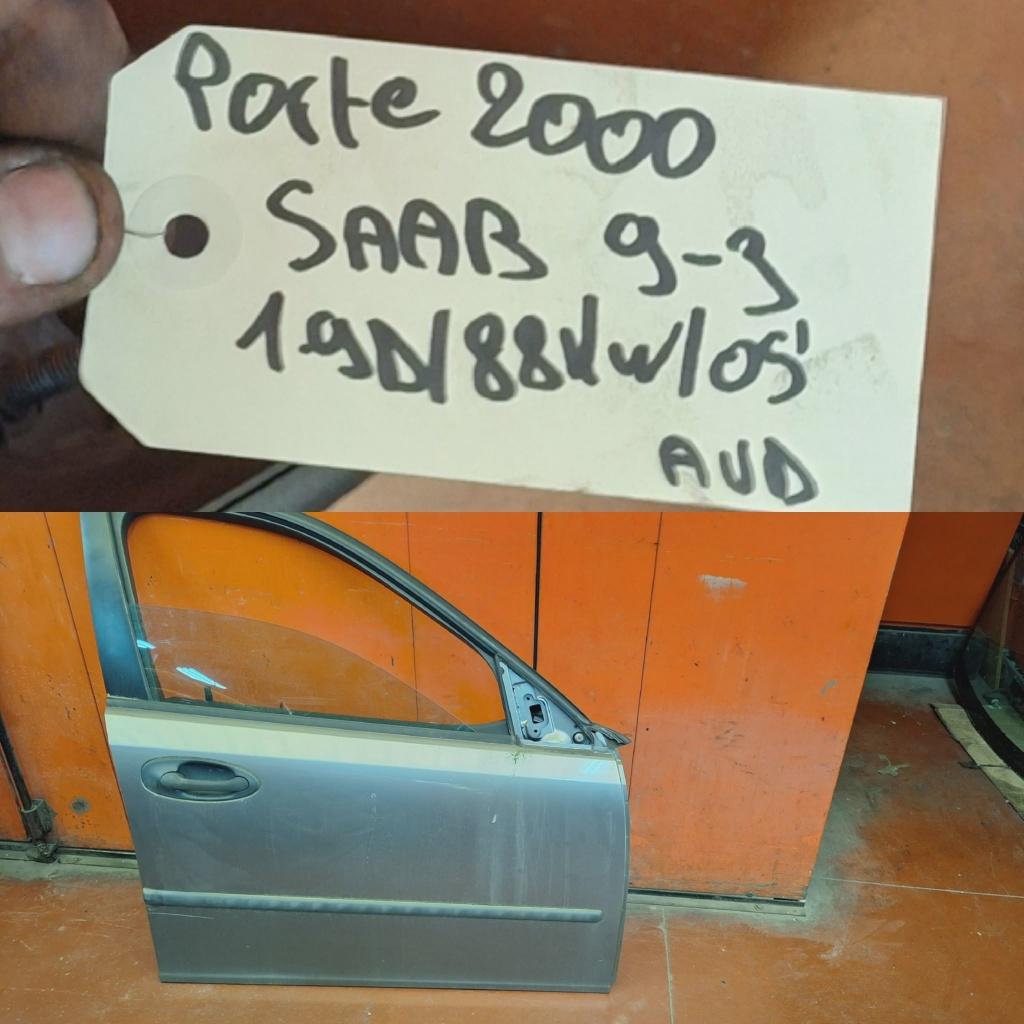 Porte 2000
SAAB 9-3
1.9D/88kw/05'
AVD